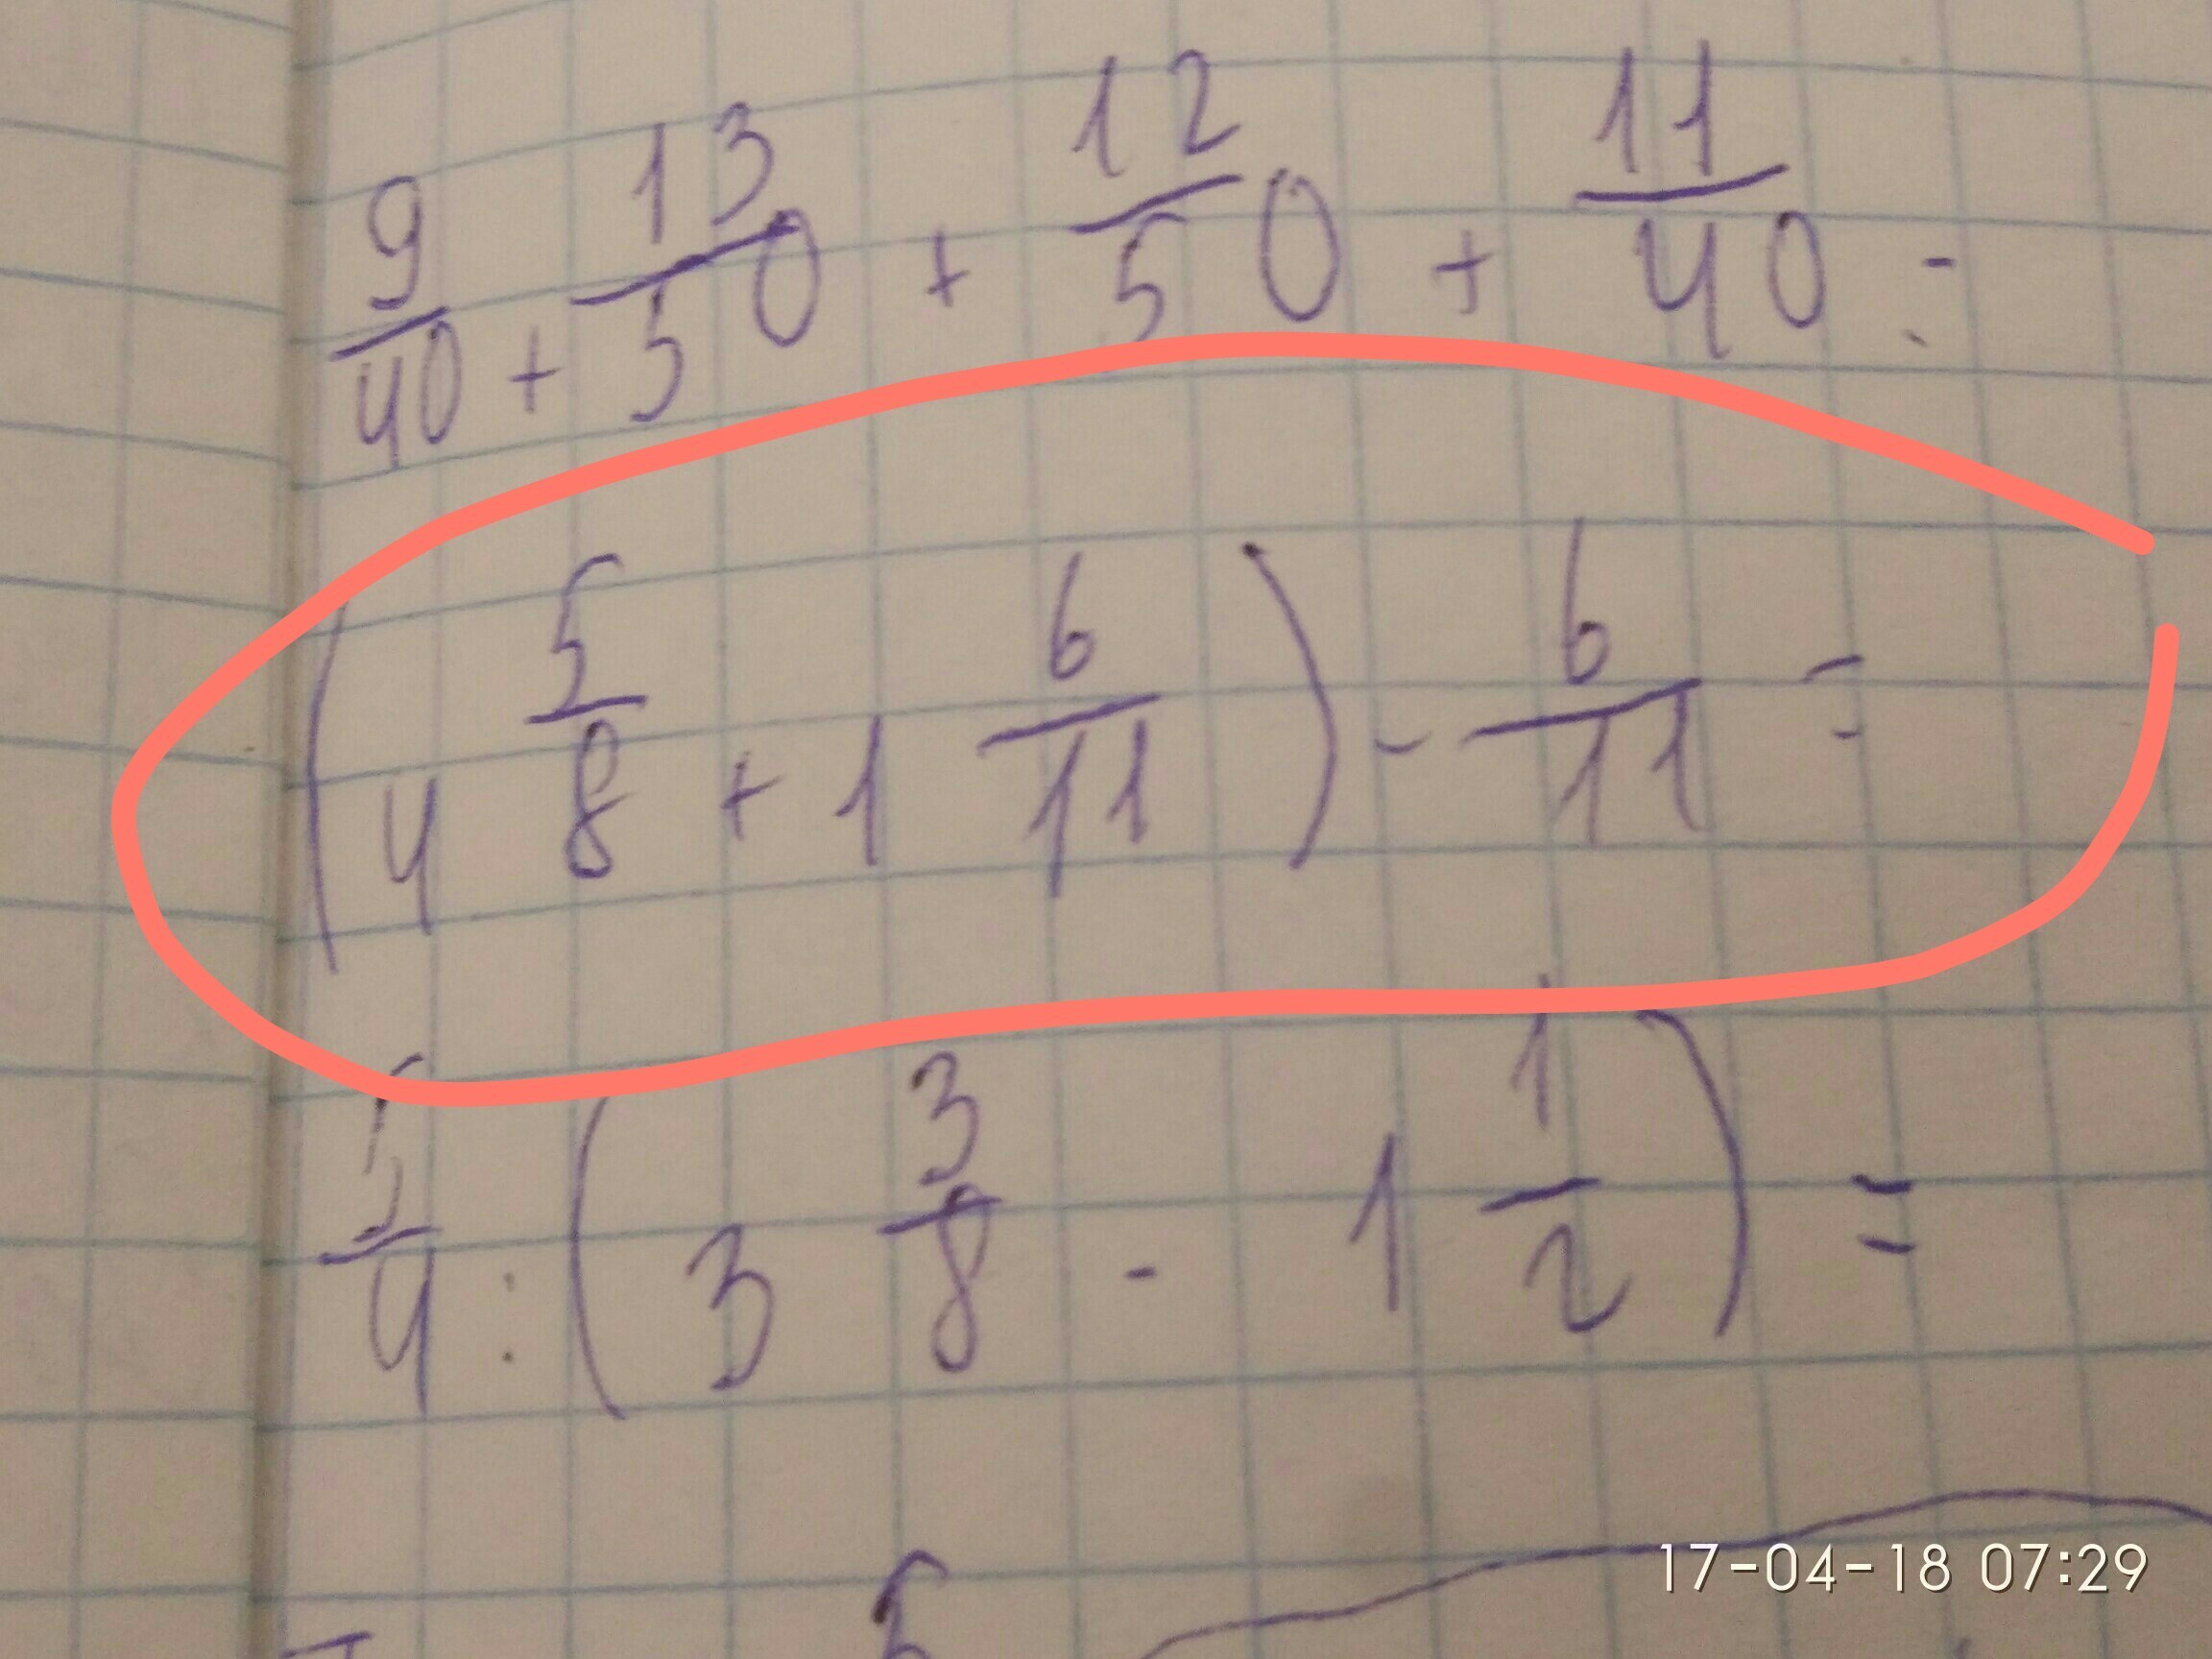 9/40 + 13/50 + 12/50 + 11/40 =
(4 5/8 + 1 6/11) - 6/11 =
5/4 : (3 3/8 - 1 1/2) =
5
17-04-18 07:29